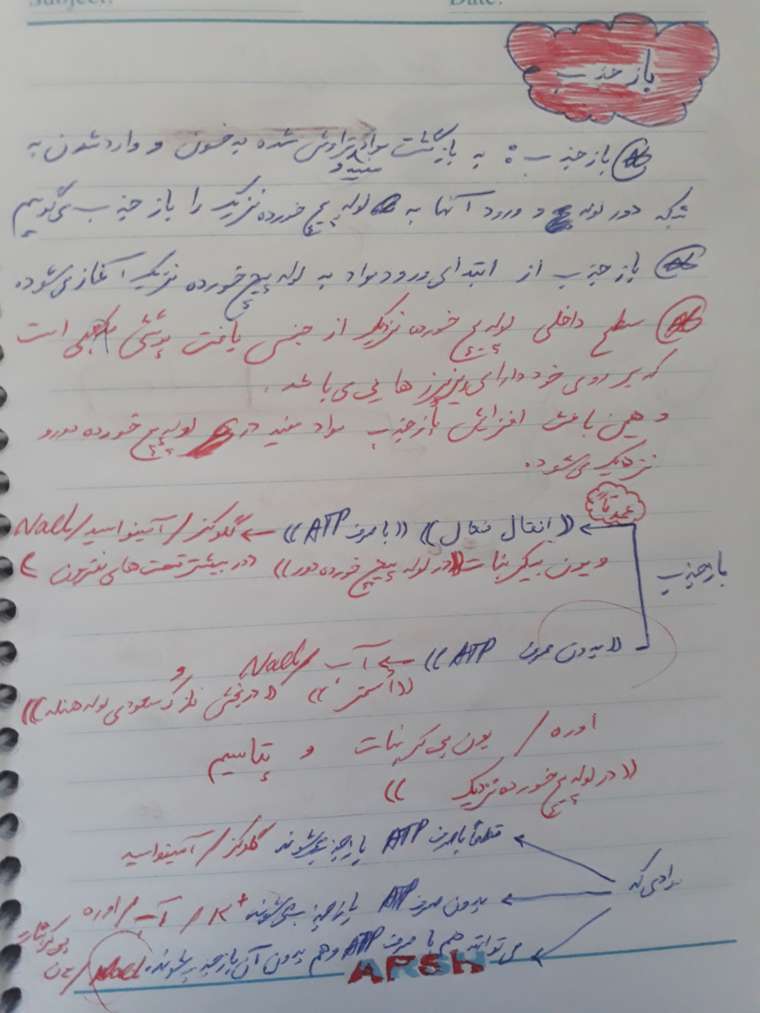 Subject:
Date:
باز جذب
باز جذب : به بازگشت مواد تراوش شده به خون و وارد شدن به
شبکه دور لوله و ورود آنها به لوله پیچ خورده نزدیک را باز جذب می‌گوییم
باز جذب از ابتدای ورود مواد به لوله پیچ خورده نزدیک آغاز می‌شود.
سطح داخلی لوله پیچ خورده نزدیک از جنس بافت پوششی مکعبی است
که بر روی خود دارای ریزپرزهایی می باشد.
و همین باعث افزایش باز جذب مواد مفید در لوله پیچ خورده دور و
نزدیک می‌شود.
باز جذب
عمدتاً
(انتقال فعال) ((با صرف ATP)) ← گلوکز / آمینواسید / NaCl
و یون بیکربنات ((در لوله پیچ خورده دور)) در بیشتر قسمت های نفرون
((بدون صرف ATP)) ← آب / NaCl و
((اسمز)) ((در بخش نازک صعودی لوله هنله))
اوره / یون بی کربنات و پتاسیم
((در لوله پیچ خورده نزدیک))
موادی که
قطعاً با صرف ATP باز جذب می‌شوند گلوکز / آمینواسید
بدون صرف ATP باز جذب می‌شوند K+ / آب / اوره
می توانند هم با صرف ATP و هم بدون آن باز جذب شوند. NaCl / یون بی کربنات
ARSH